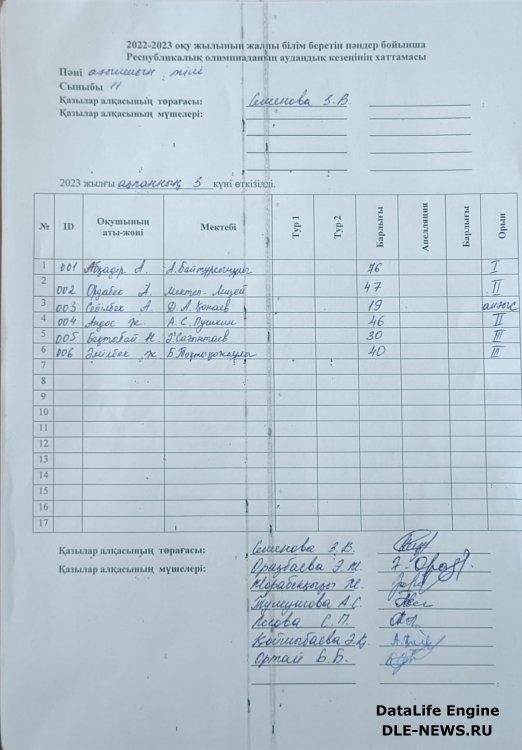 2022-2023 оқу жылының жалпы білім беретін пәндер бойынша
Республикалық олимпиаданың аудандық кезеңінің хаттамасы
Пәні ағылшын тілі
Сыныбы 11
Қазылар алқасының төрағасы: Семенова З.В.
Қазылар алқасының мүшелері:
2023 жылғы ақпанның 3 күні өткізілді.
№ ID Оқушының аты-жөні Мектебі Тур 1 Тур 2 Барлығы Апелляция Барлығы Орын
1 001 А. А.Байтұрсынұлы 76 I
2 002 Ордабек А. Мектеп-Лицей 47 II
3 003 Сейілбек А. Д.А.Қонаев 19 алғыс
4 004 Ж. А.С.Пушкин 46 II
5 005 Бақтыбай Н. 30 III
6 006 Ж. 40 III
7
8
9
10
11
12
13
14
15
16
17
Қазылар алқасының төрағасы: Семенова З.В.
Қазылар алқасының мүшелері: Оразбаева Э.М.
Н.
А.С.
С.П.
Қойшыбаева
Ортай Б.Б.
DataLife Engine
DLE-NEWS.RU